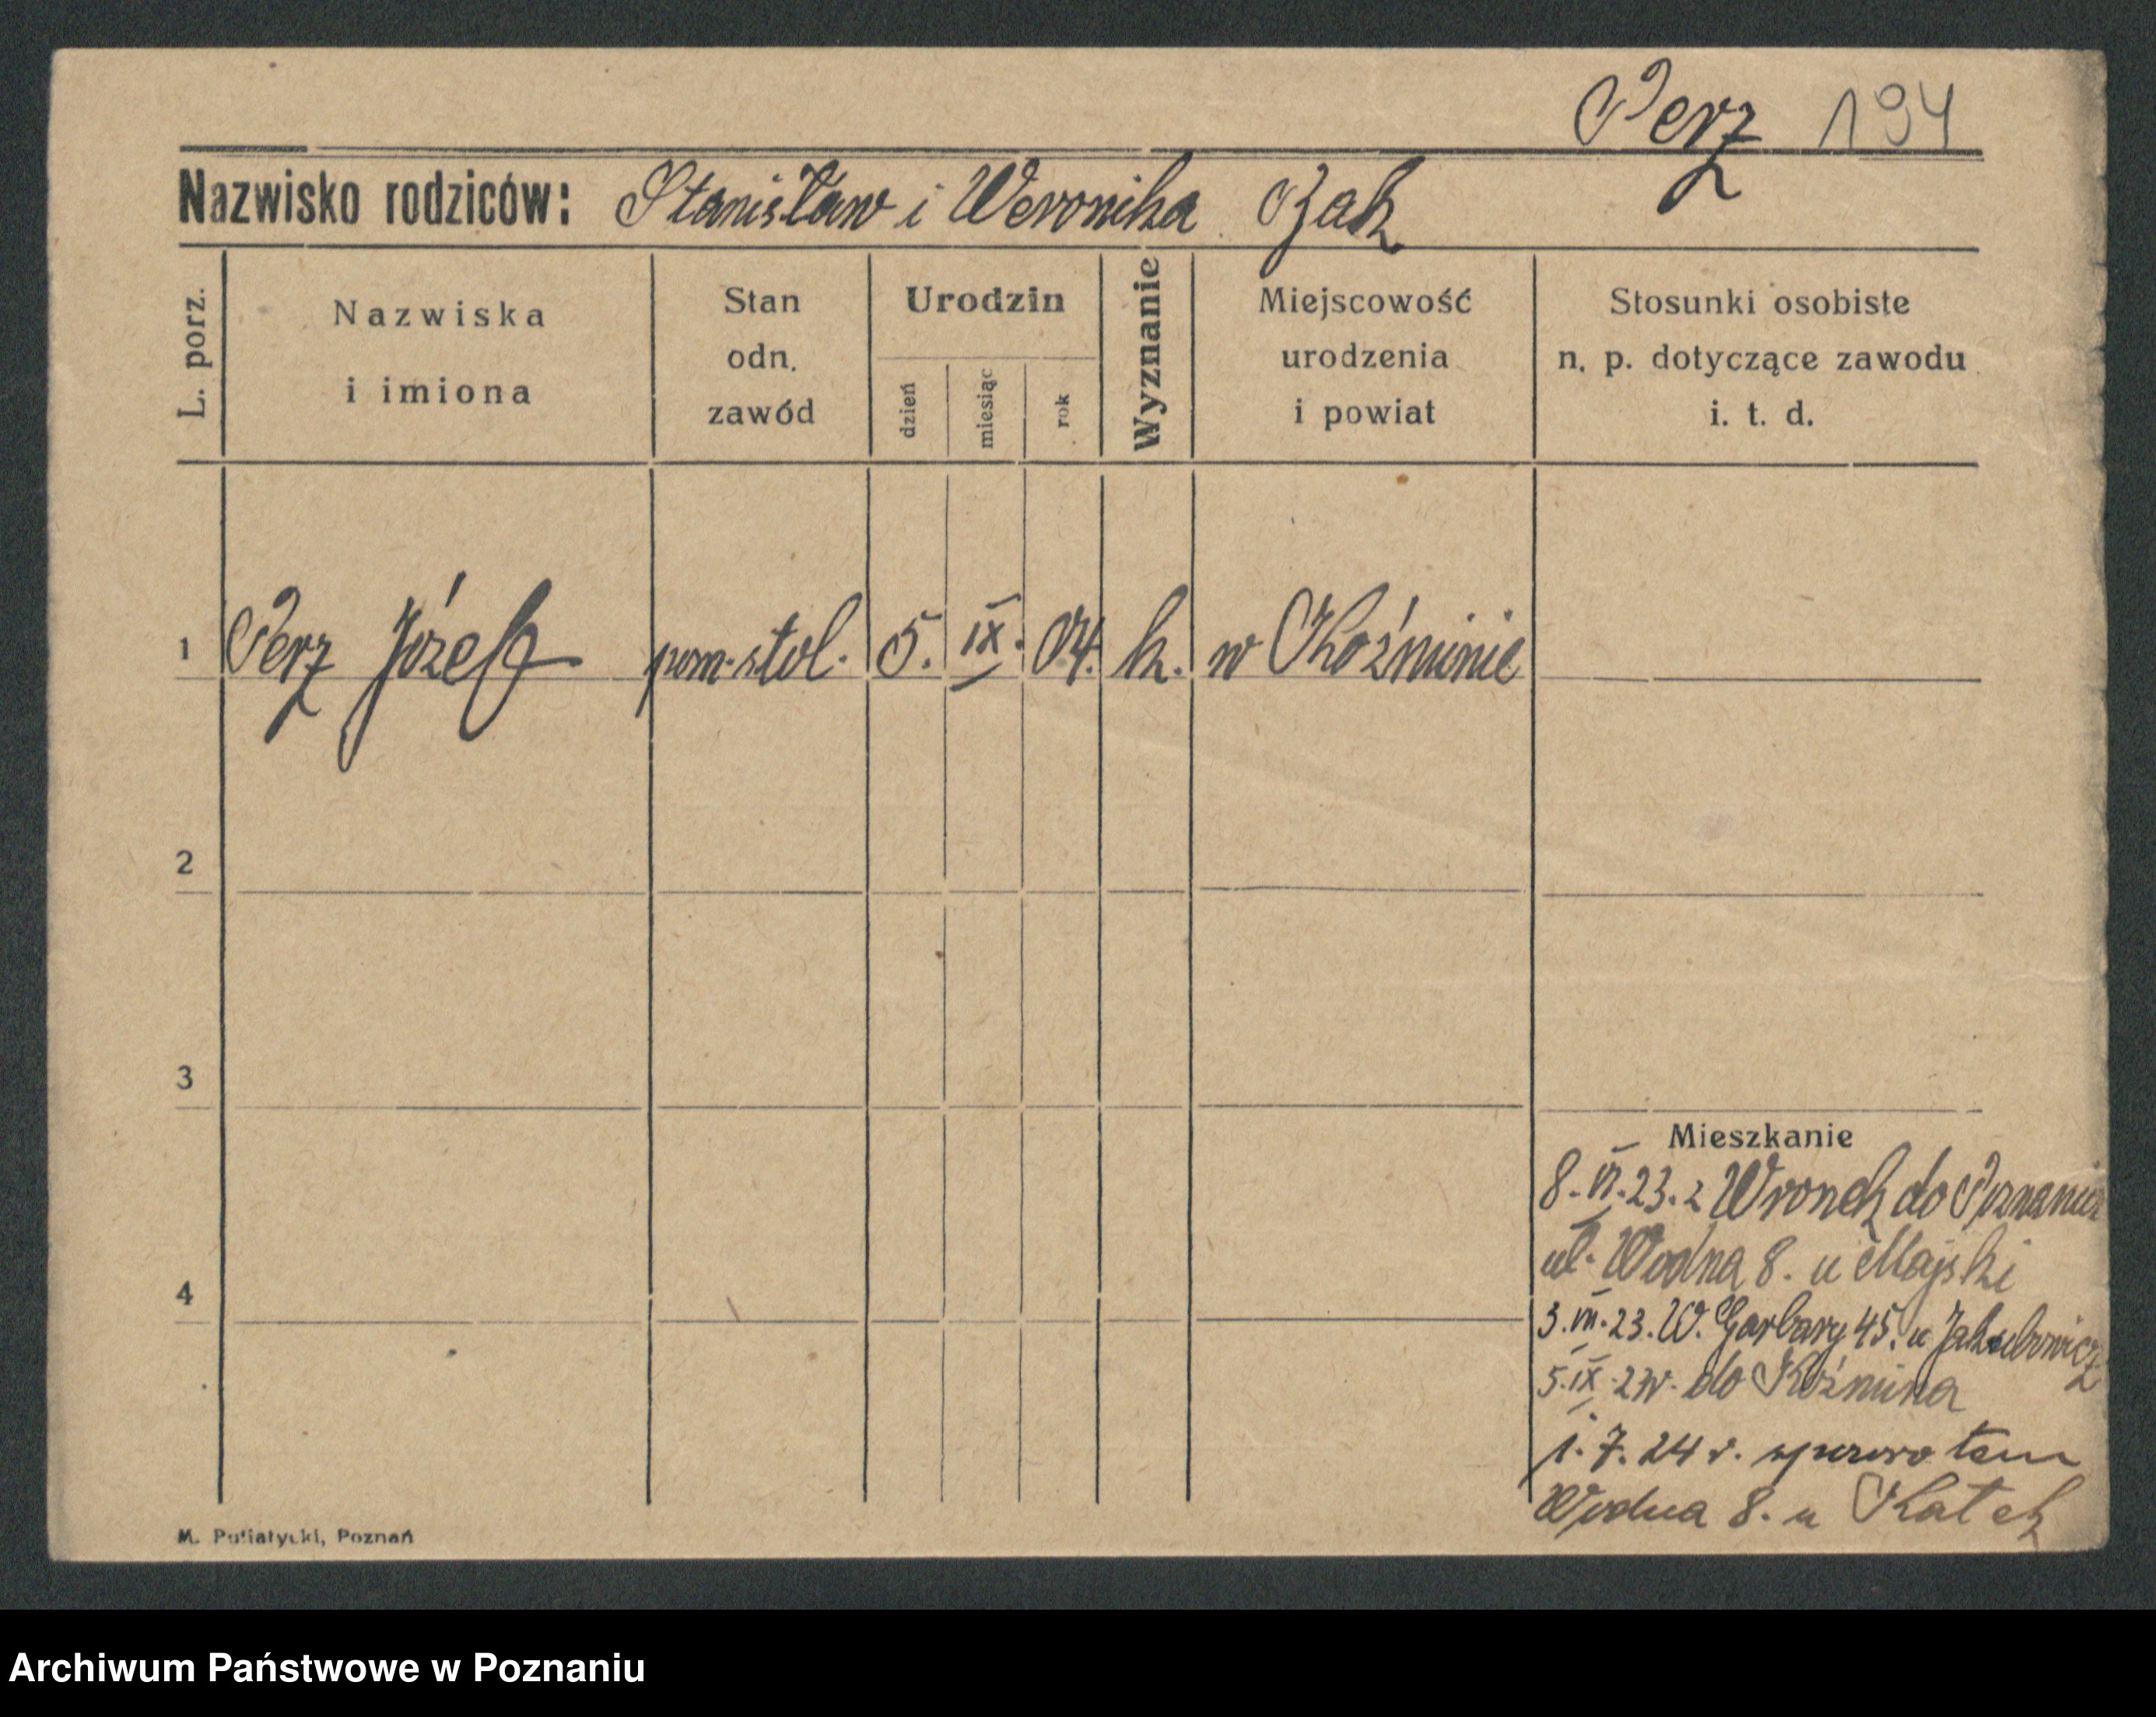 Perz 194
Nazwisko rodziców: Stanisław i Weronika
L. porz.
Nazwiska i imiona
Stan odn. zawód
Urodzin
dzień
miesiąc
rok
Wyznanie
Miejscowość urodzenia i powiat
Stosunki osobiste n. p. dotyczące zawodu i. t. d.
1 Perz Józef pom. stol. 5. IX. 04. k. w Koźminie
2
3
4
Mieszkanie
8. VI. 23. z Wronek do Poznania
ul. Wodna 8. u Majski
3. VII. 23. W. Garbary 45. u Jakubowicz
5. IX. 23 r. do Koźmina
1. 7. 24 r. tem
Wodna 8. u Ratek
M. Putiatycki, Poznań
Archiwum Państwowe w Poznaniu